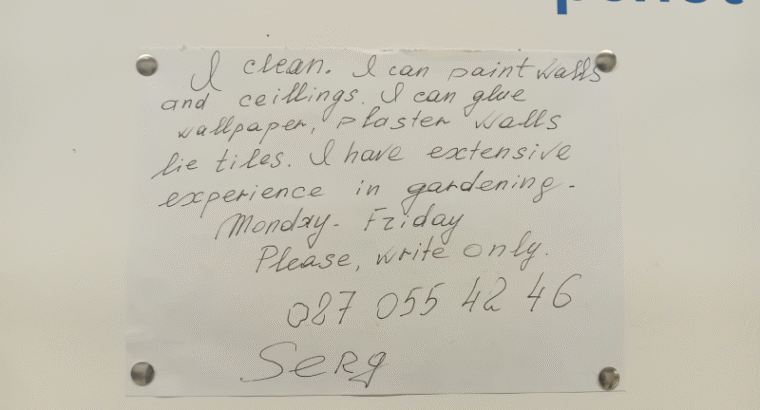 I clean. I can paint walls
and ceillings. I can glue
wallpaper, plaster walls
lie tiles. I have extensive
experience in gardening.
Monday - Friday
Please, write only.
027 055 42 46
Serg